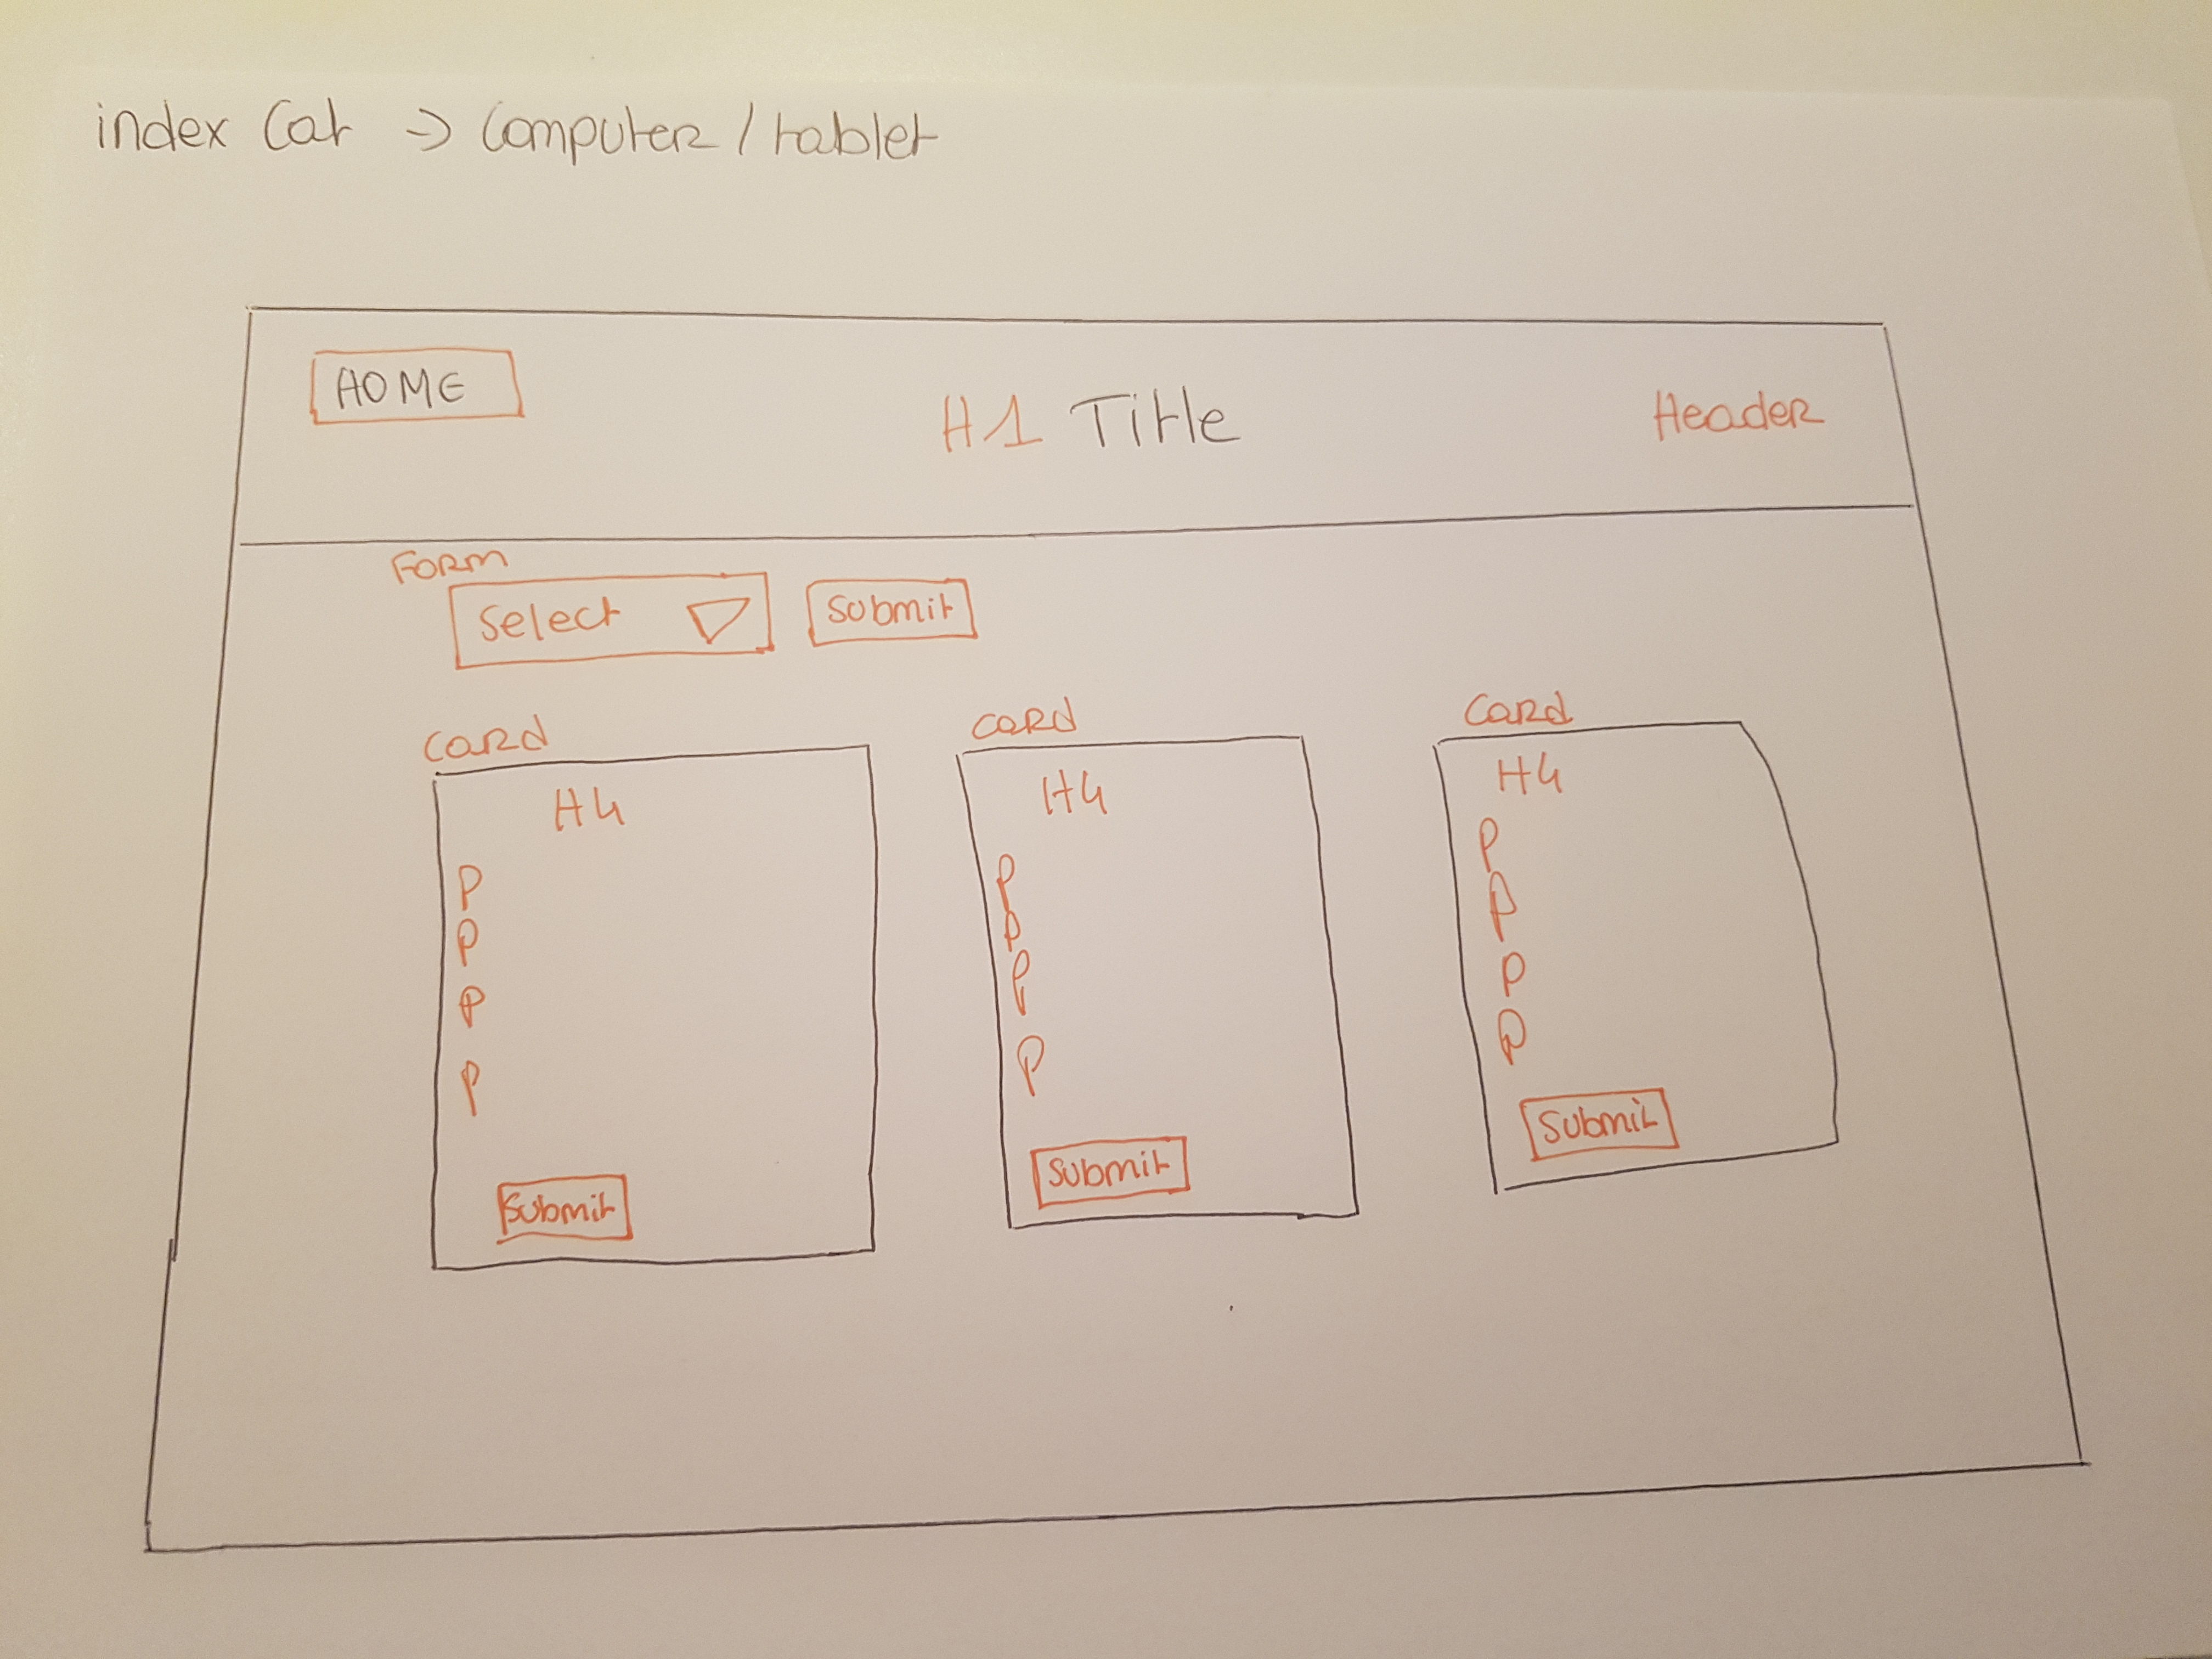 index Cat -> Computer / tablet
HOME
H1 Title
Header
Form
Select
Submit
Card
H4
P
P
P
P
Submit
Card
H4
P
P
P
P
Submit
Card
H4
P
P
P
P
Submit